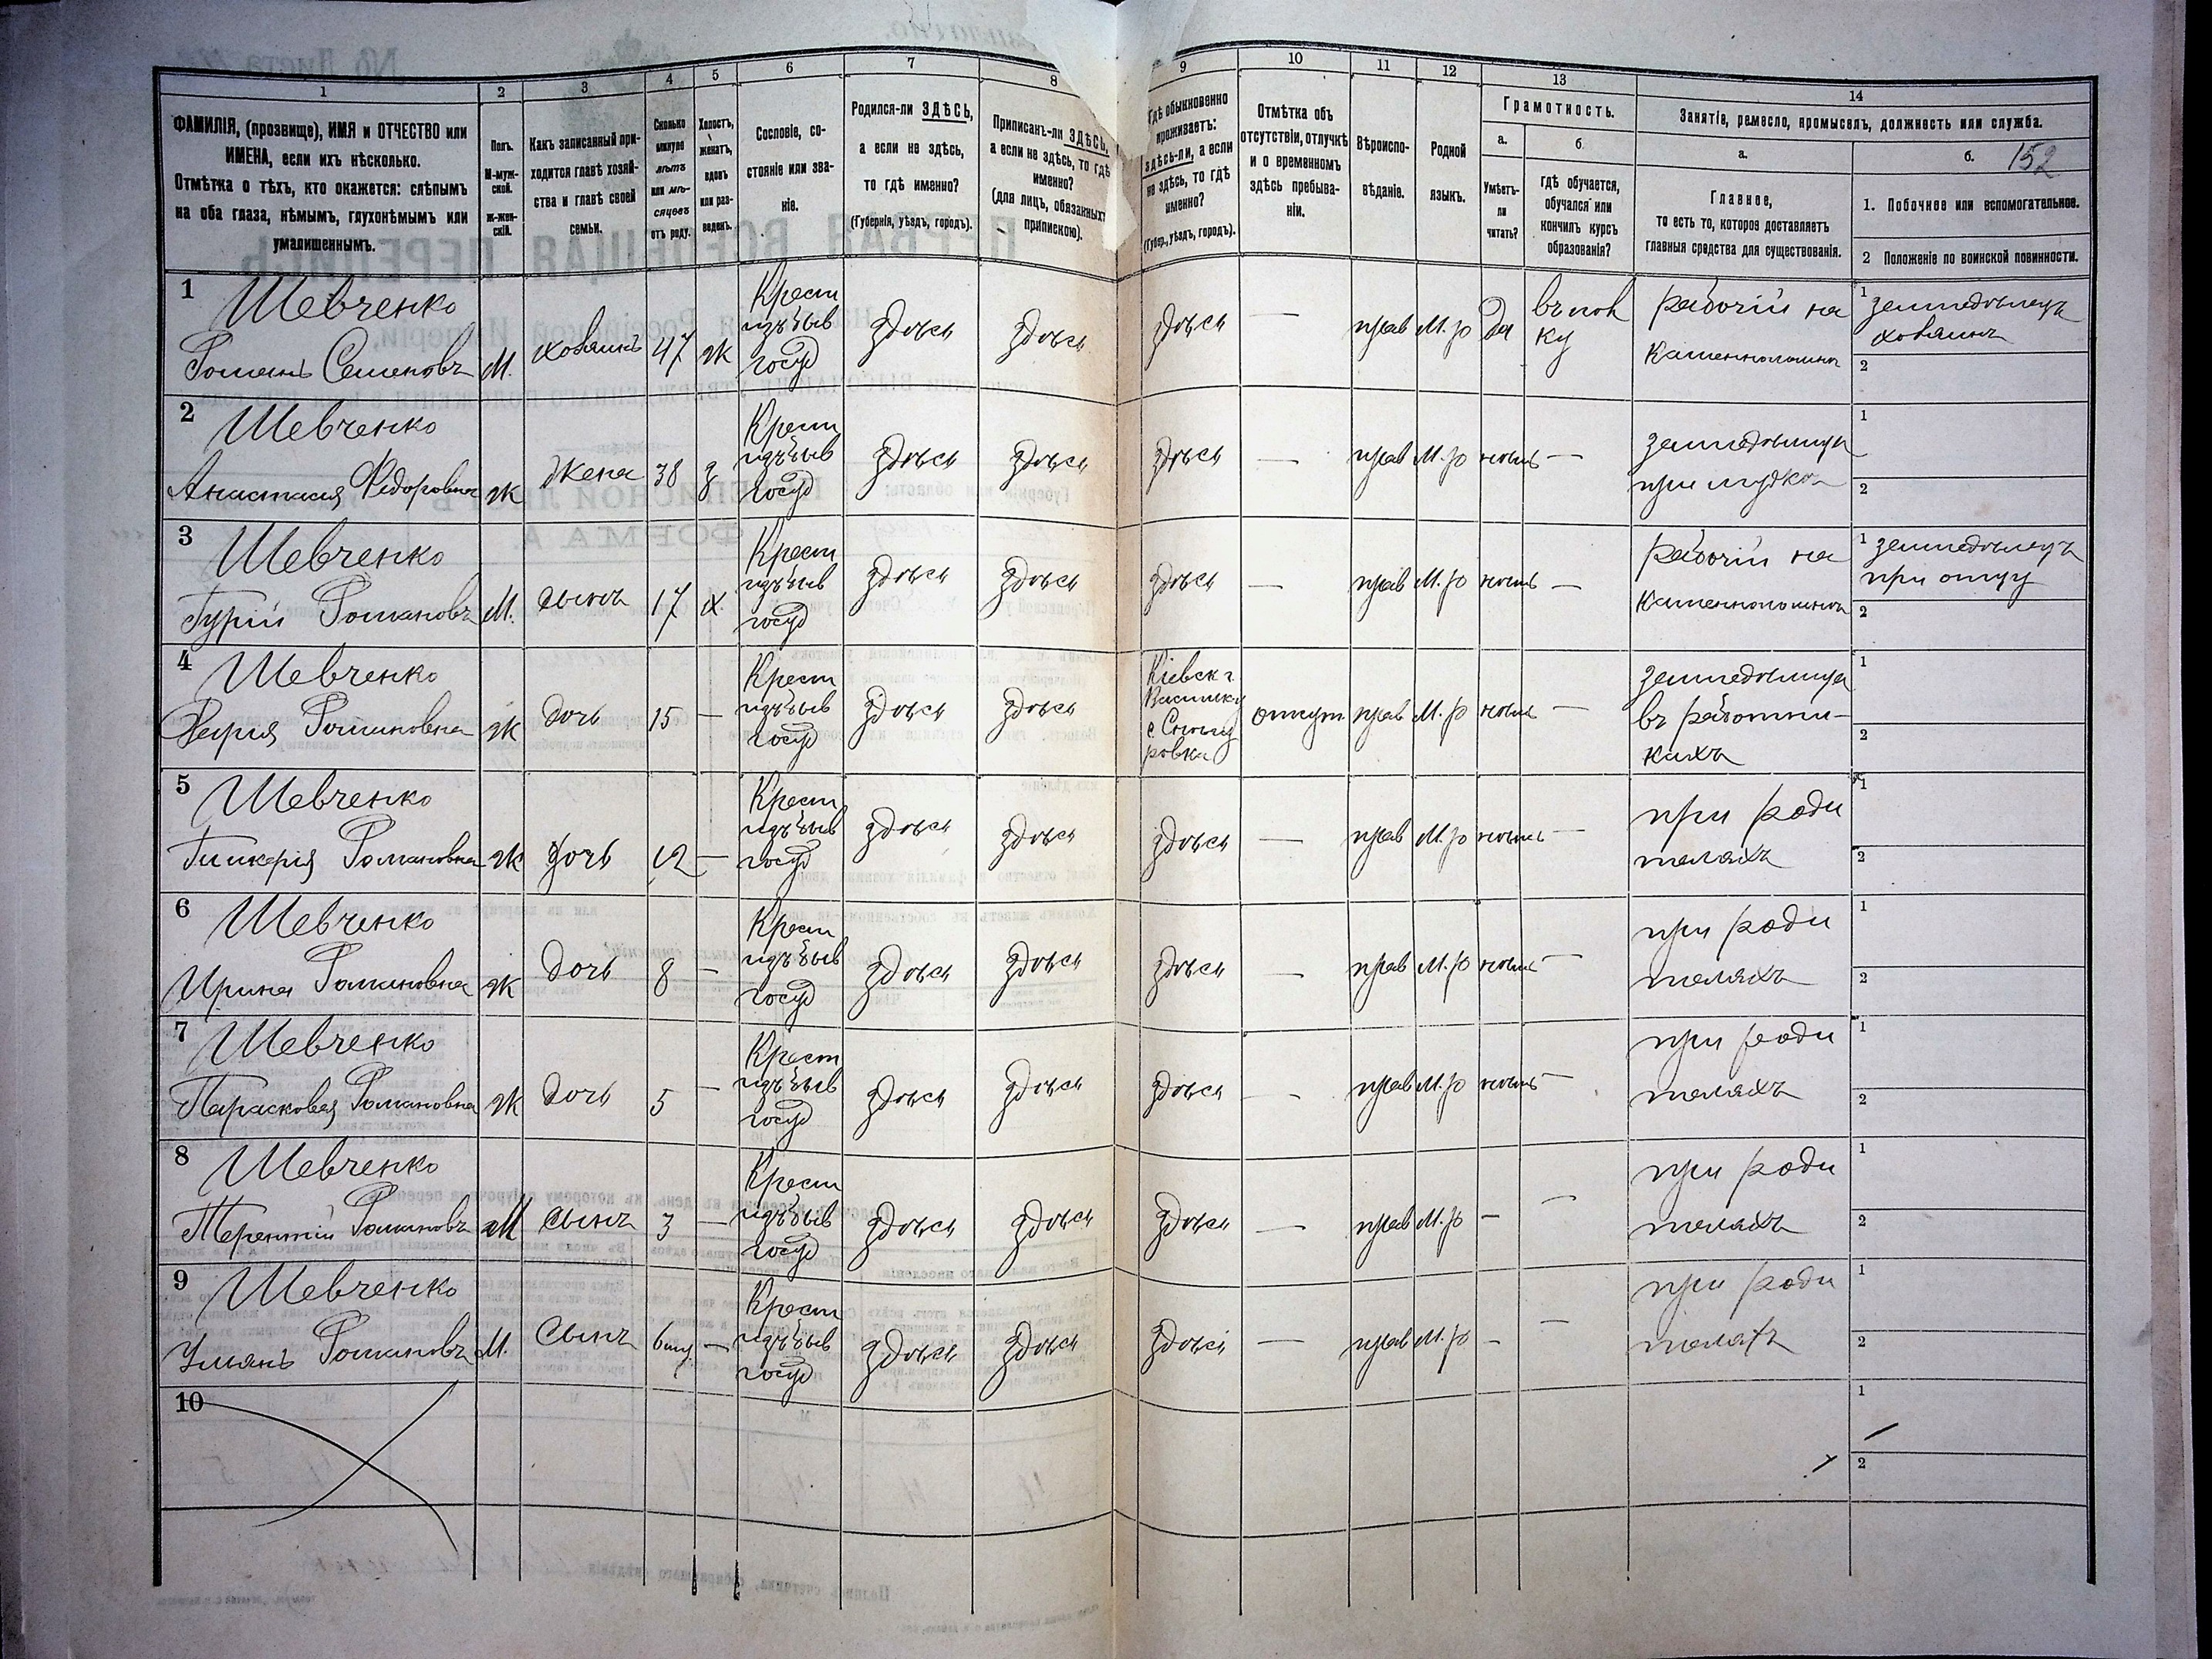 1 2 3 4 5 6 7 8 9 10 11 12 13 14
ФАМИЛІЯ, (прозвище), ИМЯ и ОТЧЕСТВО или
ИМЕНА, если ихъ нѣсколько.
Отмѣтка о тѣхъ, кто окажется: слѣпымъ
на оба глаза, нѣмымъ, глухонѣмымъ или
умалишеннымъ.
Полъ.
М-муж-
ской.
Ж-жен-
скій.
Какъ записанный при-
ходится главѣ хозяй-
ства и главѣ своей
семьи.
Сколько
минуло
лѣтъ
или мѣ-
сяцевъ
отъ роду.
Холостъ,
женатъ,
вдовъ
или раз-
веденъ.
Сословіе, со-
стояніе или зва-
ніе.
Родился-ли ЗДѢСЬ,
а если не здѣсь,
то гдѣ именно?
(Губернія, уѣздъ, городъ).
Приписанъ-ли ЗДѢСЬ,
а если не здѣсь, то гдѣ
именно?
(для лицъ, обязанныхъ
припискою).
Гдѣ обыкновенно
проживаетъ:
здѣсь-ли, а если
не здѣсь, то гдѣ
именно?
(Губер., уѣздъ, городъ).
Отмѣтка объ
отсутствіи, отлучкѣ
и о временномъ
здѣсь пребыва-
ніи.
Вѣроиспо-
вѣданіе.
Родной
языкъ.
Грамотность.
а.
Умѣетъ-
ли
читать?
б.
гдѣ обучается,
обучался или
кончилъ курсъ
образованія?
Занятіе, ремесло, промыселъ, должность или служба.
а.
Главное,
то есть то, которое доставляетъ
главныя средства для существованія.
б. 152
1. Побочное или вспомогательное.
2 Положеніе по воинской повинности.
1 Шевченко
Романъ Семеновъ М. хозяинъ 47 ж
Крест
изъ быв
госуд
здѣсь здѣсь здѣсь — прав М.р да
въ пол
ку
рабочій на
каменоломнѣ
1 земледѣлецъ
хозяинъ
2
2 Шевченко
Анастасія Федоровна ж жена 38 з
Крест
изъ быв
госуд
здѣсь здѣсь здѣсь — прав М.р нѣтъ —
земледѣлица
при мужѣ
1
2
3 Шевченко
Гурій Романовъ М. сынъ 17 х.
Крест
изъ быв
госуд
здѣсь здѣсь здѣсь — прав М.р нѣтъ —
рабочій на
каменоломнѣ
1 земледѣлецъ
при отцу
2
4 Шевченко
Романовна ж дочь 15 —
Крест
изъ быв
госуд
здѣсь здѣсь
Кіевск г
Васильк у
с.
ровка
отсут прав М.р нѣтъ —
земледѣлица
въ работни-
кахъ
1
2
5 Шевченко
Гликерія Романовна ж дочь 12 —
Крест
изъ быв
госуд
здѣсь здѣсь здѣсь — прав М.р нѣтъ —
при роди
теляхъ
1
2
6 Шевченко
Ирина Романовна ж дочь 8 —
Крест
изъ быв
госуд
здѣсь здѣсь здѣсь — прав М.р нѣтъ —
при роди
теляхъ
1
2
7 Шевченко
Парасковея Романовна ж дочь 5 —
Крест
изъ быв
госуд
здѣсь здѣсь здѣсь — прав М.р нѣтъ —
при роди
теляхъ
1
2
8 Шевченко
Терентій Романовъ М сынъ 3 —
Крест
изъ быв
госуд
здѣсь здѣсь здѣсь — прав М.р — —
при роди
теляхъ
1
2
9 Шевченко
Ульянъ Романовъ М. Сынъ 6 —
Крест
изъ быв
госуд
здѣсь здѣсь здѣсь — прав М.р — —
при роди
теляхъ
1
2
10
1
2